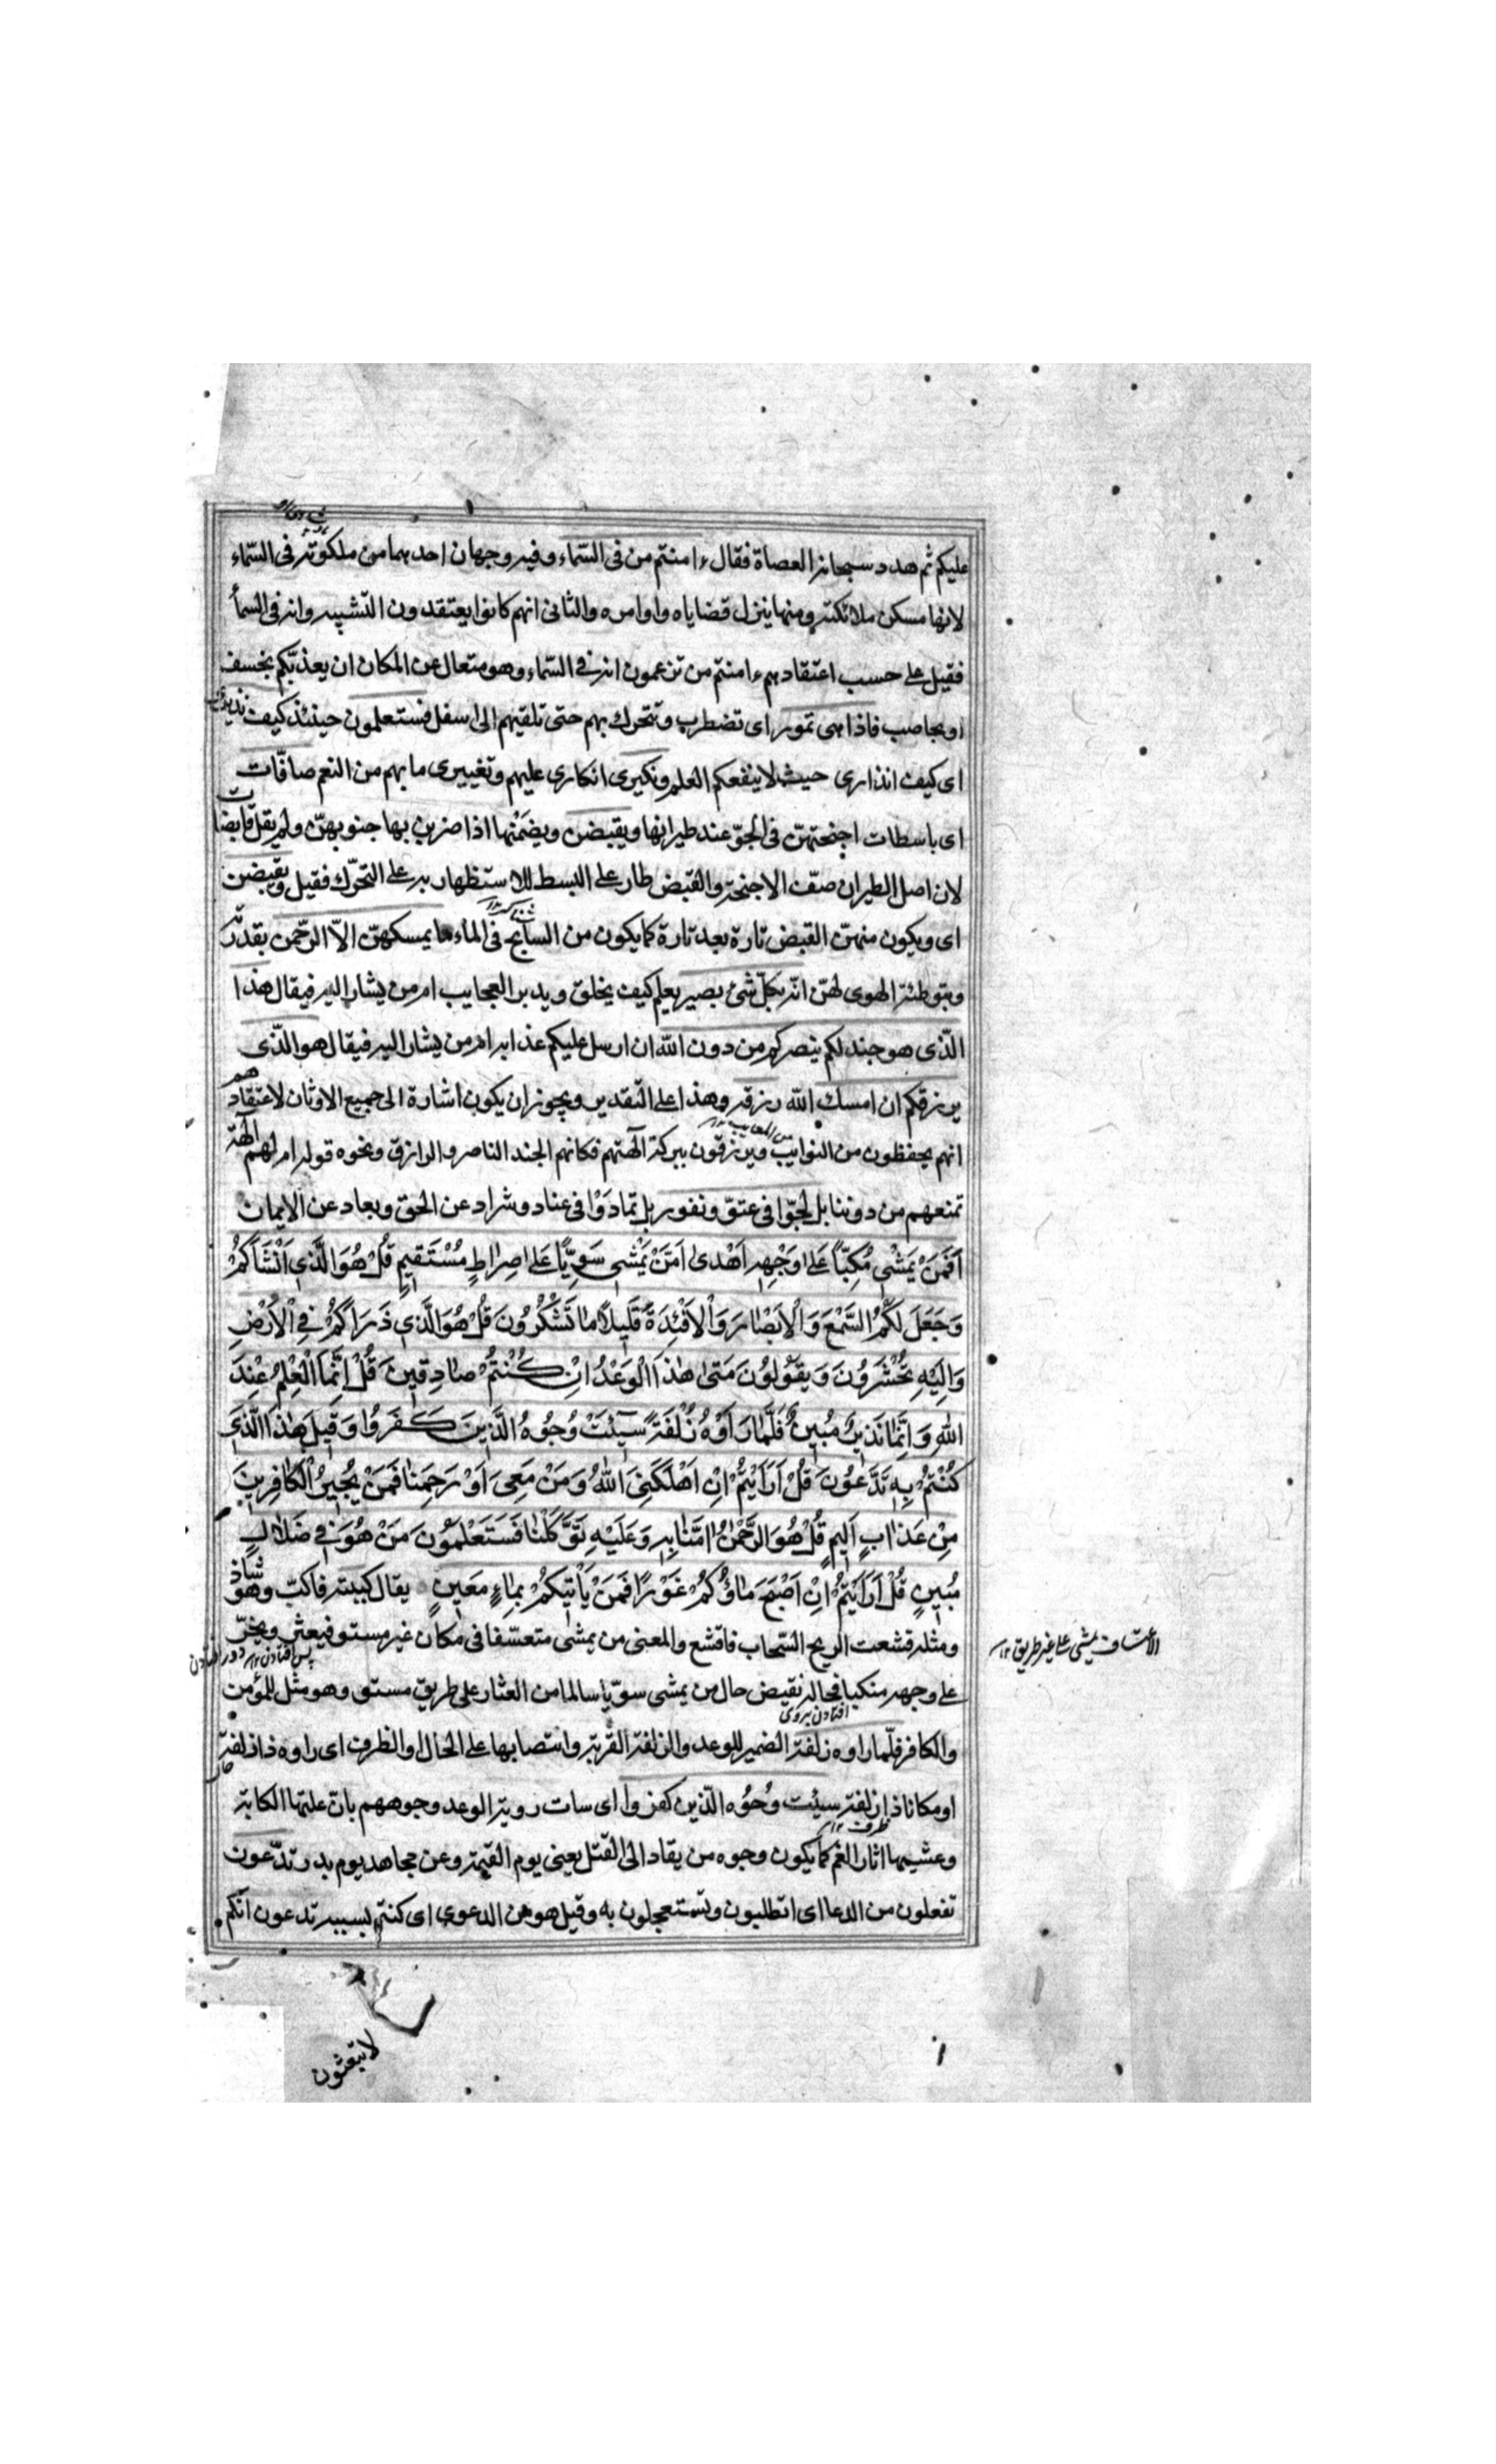 عليكم ثم هدد سبحانه العصاة فقال ءامنتم من فى السّماء وفيه وجهان احدهما من ملكوته فى السّماء
لانها مسكن ملائكته ومنها ينزل قضاياه واوامره والثانى انهم كانوا يعتقدون التشبيه وانه فى السمآء
فقيل على حسب اعتقادهم ءامنتم من تزعمون انه فى السّماء وهو متعال عن المكان ان يعذبّكم بخسف
او بحاصب فاذا هى تمور اى تضطرب وتتحرك بهم حتى تلقيهم الى اسفل فستعلمون حينئذ كيف نذير
اى كيف انذارى حيث لا ينفعكم العلم ونكيرى انكارى عليهم وتغييرى ما بهم من النعم صافّات
اى باسطات اجنحتهنّ فى الجوّ عند طيرانها ويقبضن ويضمنها اذا ضربن بها جنوبهنّ ولم يقل قابضات
لان اصل الطيران صفّ الاجنحة والقبض طار على البسط للاستظهار به على التحرّك فقيل ويقبضن
اى ويكون منهنّ القبض تارة بعد تارة كما يكون من السابح فى الماء ما يمسكهنّ الاّ الرّحمن بقدرته
وبتوطئته الهوى لهنّ انّه بكلّ شئ بصير يعلم كيف يخلق ويدبر العجايب امر من يشار اليه فيقال هذا
الّذى هو جند لكم ينصركم من دون الله ان ارسل عليكم عذابه امر من يشار اليه فيقال هو الّذى
يرزقكم ان امسك الله رزقه وهذا على التقدير ويجوز ان يكون اشارة الى جميع الاوثان لاعتقادهم
انهم يحفظون من النوايب ويرزقون ببركة آلهتهم فكانهم الجند الناصر والرازق ونحوه قوله ام لهم الهة
تمنعهم من دوننا بل لجّوا فى عتوّ ونفور بل تمادَوْا فى عناد وشراد عن الحق وبعاد عن الايمان
اَفَمَنْ يَمْشِى مُكِبّاً عَلى وَجْهِهِ اَهْدى اَمَّنْ يَمْشِى سَوِيّاً عَلى صِراطٍ مُسْتَقيمٍ قُلْ هُوَ الَّذى اَنْشَاَكُمْ
وَجَعَلَ لَكُمُ السَّمْعَ وَالْاَبْصارَ وَالْاَفْئِدَةَ قَليلاً ما تَشْكُرُونَ قُلْ هُوَ الَّذى ذَرَاَكُمْ فِى الْاَرْضِ
وَاِلَيْهِ تُحْشَرُونَ وَيَقُولُونَ مَتى هذَا الْوَعْدُ اِنْ كُنْتُمْ صادِقينَ قُلْ اِنَّمَا الْعِلْمُ عِنْدَ
اللهِ وَاِنَّما نَذيرٌ مُبينٌ فَلَمّا رَاَوْهُ زُلْفَةً سيَئَتْ وُجُوهُ الَّذينَ كَفَرُوا وَقيلَ هذَا الَّذى
كُنْتُمْ بِهِ تَدَّعُونَ قُلْ اَرَاَيْتُمْ اِنْ اَهْلَكَنِىَ اللهُ وَمَنْ مَعِىَ اَوْ رَحِمَنا فَمَنْ يُجيرُ الْكافِرينَ
مِنْ عَذابٍ اَليمٍ قُلْ هُوَ الرَّحْمنُ امَنّا بِهِ وَعَلَيْهِ تَوَكَّلْنا فَسَتَعْلَمُونَ مَنْ هُوَ فى ضَلالٍ
مُبينٍ قُلْ اَرَاَيْتُمْ اِنْ اَصْبَحَ ماؤُكُمْ غَوْرًا فَمَنْ يَاْتيكُمْ بِماءٍ مَعينٍ يقال كببته فاكبّ وهو شاذ
ومثله قشعت الريح السّحاب فاقشع والمعنى من يمشى متعسّفا فى مكان غير مستو فيعثر ويخرّ
الاعتساف يمشى على غير طريق ١٢
على وجهه منكبا فحاله نقيض حال من يمشى سويّا سالما من العثار على طريق مستو وهو مثل للمؤمن
افتادن بروى
والكافر فلمّا راوه زلفة الضمير للوعد والزلفة القربة وانتصابها على الحال او الظرف اى راوه ذا زلفة
او مكانا ذا زلفة سيئت وُجُوه الّذين كفروا اى سات روية الوعد وجوههم بان علتها الكابة
ظرف ١٢
وغشيها اثار الغم كما يكون وجوه من يقاد الى القتل يعنى يوم القيمة وعن مجاهد يوم بدر تدّعون
تفعلون من الدعا اى تطلبون وتستعجلون به وقيل هو من الدعوى اى كنتم بسببه تدعون انّكم
لا تبعثون